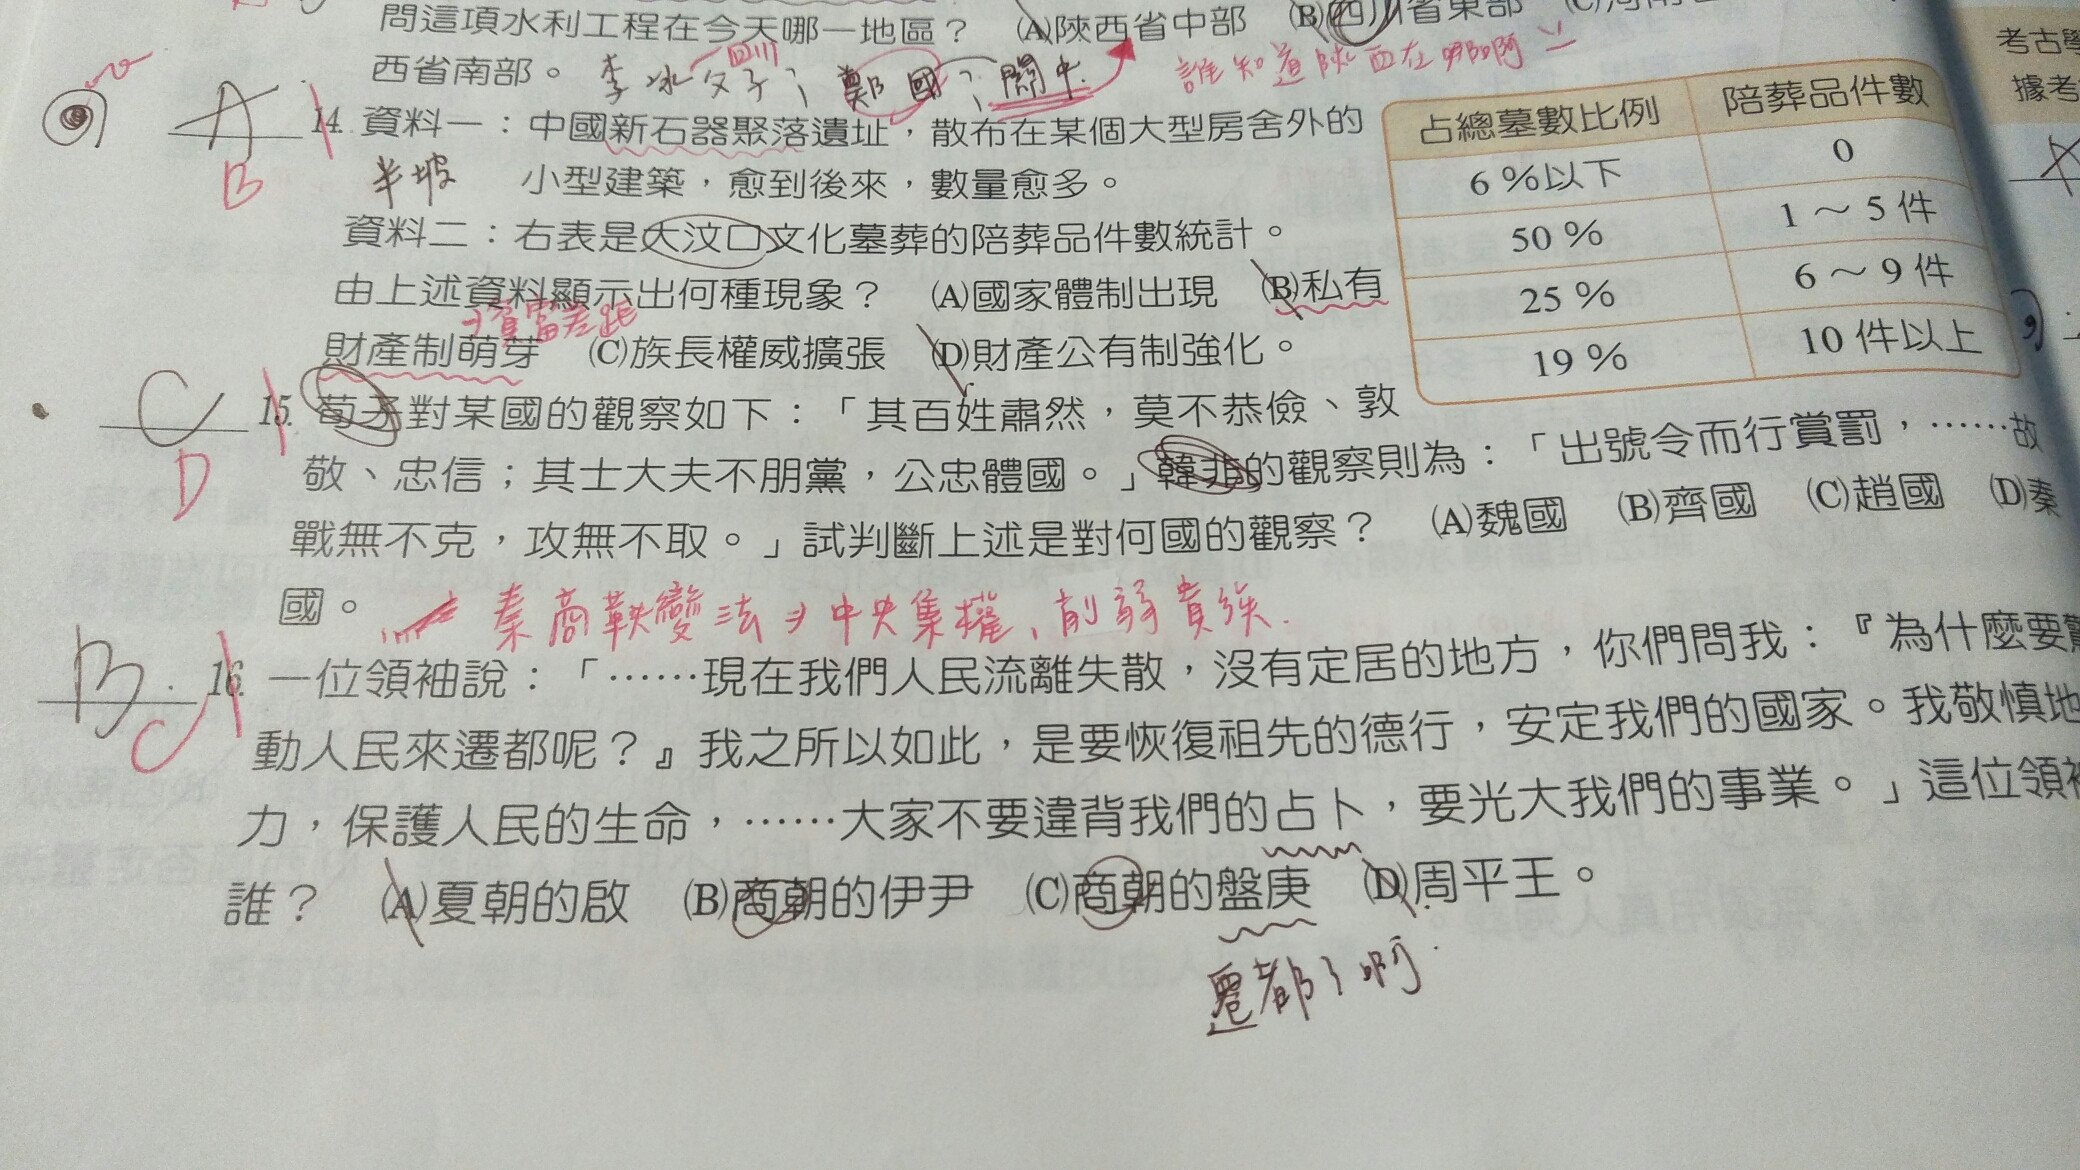 問這項水利工程在今天哪一地區？ (A)陝西省中部 (B)四川省東部
西省南部。 李冰父子； 鄭國； 關中
四川
誰知道陝西在哪阿
考古學
據考
A
B
14. 資料一：中國新石器聚落遺址，散布在某個大型房舍外的
半坡 小型建築，愈到後來，數量愈多。
資料二：右表是大汶口文化墓葬的陪葬品件數統計。
由上述資料顯示出何種現象？ (A)國家體制出現 (B)私有
→貧富差距
財產制萌芽 (C)族長權威擴張 (D)財產公有制強化。
占總墓數比例 陪葬品件數
6％以下 0
50％ 1～5件
25％ 6～9件
19％ 10件以上
C
D
15. 荀子對某國的觀察如下：「其百姓肅然，莫不恭儉、敦
敬、忠信；其士大夫不朋黨，公忠體國。」韓非的觀察則為：「出號令而行賞罰，……故
戰無不克，攻無不取。」試判斷上述是對何國的觀察？ (A)魏國 (B)齊國 (C)趙國 (D)秦
國。 秦商鞅變法→中央集權、削弱貴族.
B
C
16. 一位領袖說：「……現在我們人民流離失散，沒有定居的地方，你們問我：『為什麼要驚
動人民來遷都呢？』我之所以如此，是要恢復祖先的德行，安定我們的國家。我敬慎地
力，保護人民的生命，……大家不要違背我們的占卜，要光大我們的事業。」這位領袖
誰？ (A)夏朝的啟 (B)商朝的伊尹 (C)商朝的盤庚 (D)周平王。
遷都了啊